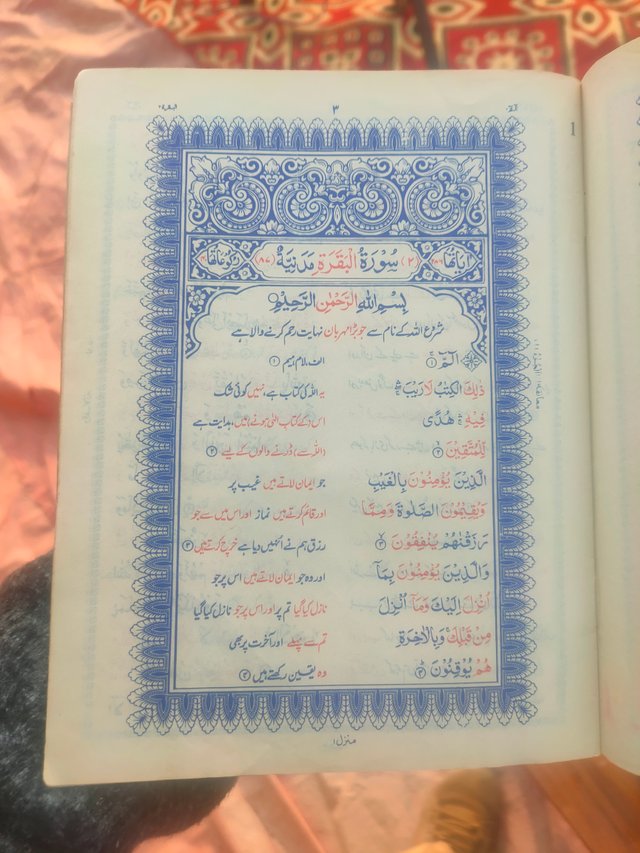 ٣
اٰیَاتُهَا ٢٨٦ (٢) سُوْرَةُ الْبَقَرَةِ مَدَنِيَّةٌ (٨٧) رُكُوْعَاتُهَا ٤٠
بِسْمِ اللّٰهِ الرَّحْمٰنِ الرَّحِيْمِ
شروع اللہ کے نام سے جو بڑا مہربان نہایت رحم کرنے والا ہے
الٓمّٓ ۚ ①
الف، لام، میم ①
ذٰلِكَ الْكِتٰبُ لَا رَيْبَ ۛۚ
یہ اللہ کی کتاب ہے، نہیں کوئی شک
فِيْهِ ۛۚ هُدًى
اس (کے کتاب الٰہی ہونے) میں، ہدایت ہے
لِّلْمُتَّقِيْنَ ۙ ②
(اللہ سے) ڈرنے والوں کے لیے ②
الَّذِيْنَ يُؤْمِنُوْنَ بِالْغَيْبِ
جو ایمان لاتے ہیں غیب پر
وَيُقِيْمُوْنَ الصَّلٰوةَ وَمِمَّا
اور قائم کرتے ہیں نماز اور اس میں سے جو
رَزَقْنٰهُمْ يُنْفِقُوْنَ ۙ ③
رزق ہم نے انہیں دیا ہے خرچ کرتے ہیں ③
وَالَّذِيْنَ يُؤْمِنُوْنَ بِمَآ
اور وہ جو ایمان لاتے ہیں اس پر جو
اُنْزِلَ اِلَيْكَ وَمَآ اُنْزِلَ
نازل کیا گیا تم پر اور اس پر جو نازل کیا گیا
مِنْ قَبْلِكَ ۚ وَبِالْاٰخِرَةِ
تم سے پہلے اور آخرت پر بھی
هُمْ يُوْقِنُوْنَ ؕ ④
وہ یقین رکھتے ہیں ④
منزل ١
1